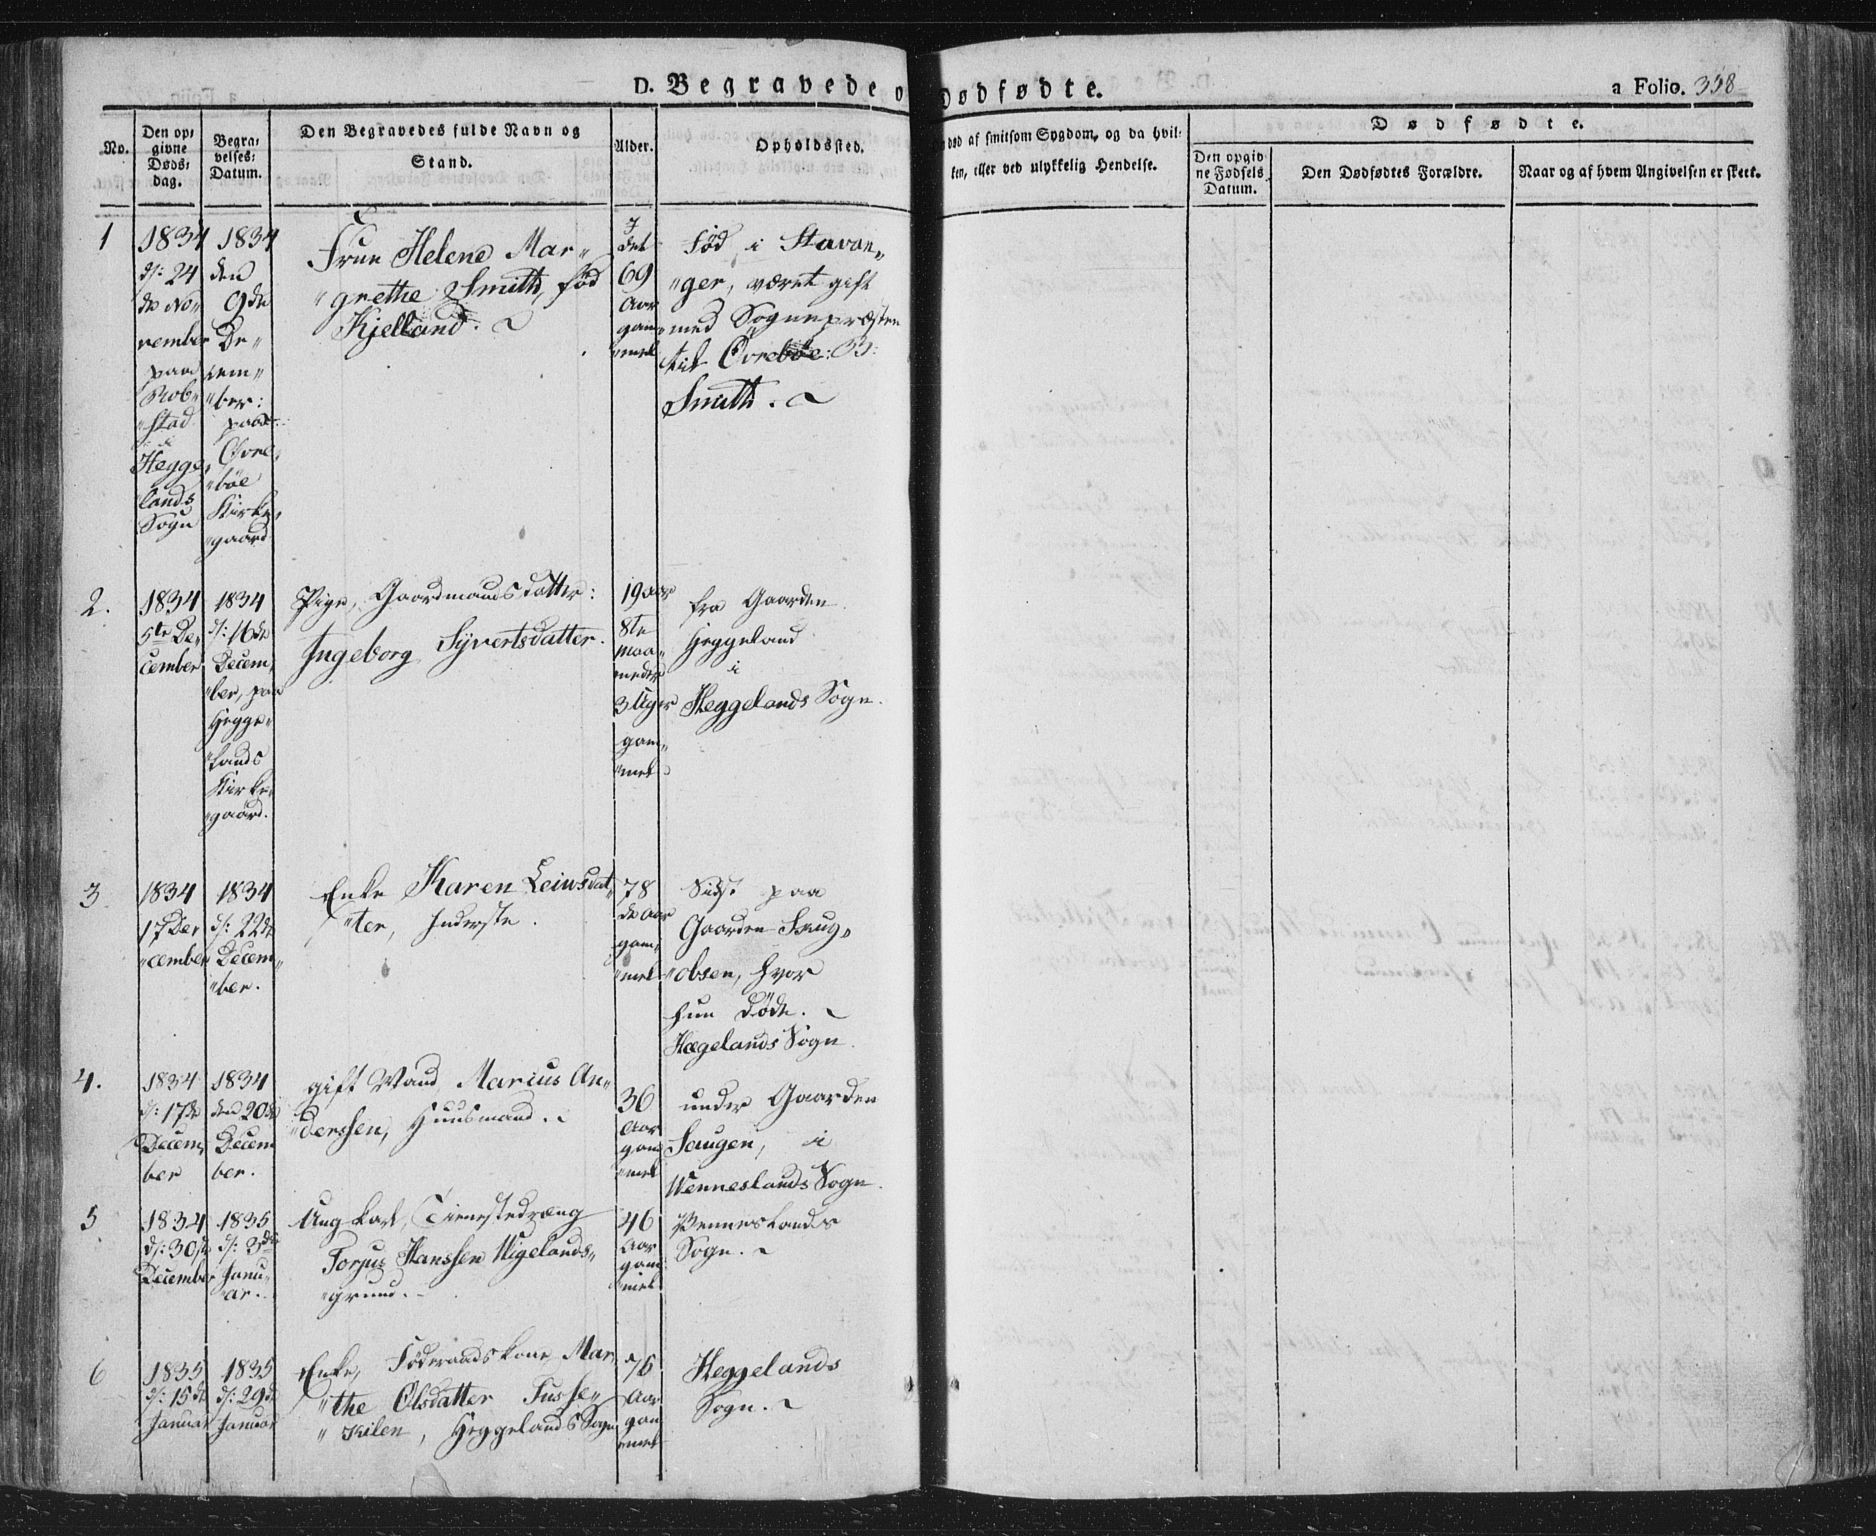 D. Begravede o
Dødfødte.
a Folio. 358
No.
Den op-
givne
Døds-
dag.
Begra-
velses-
Datum.
Den Begravedes fulde Navn og
Stand.
Alder.
Opholdssted.
død af smitsom Sygdom, og da hvil-
ken, eller ved ulykkelig Hendelse.
Dødfødte.
Den opgiv-
ne Fødsels
Datum.
Den Dødfødtes Forældre.
Naar og af hvem Angivelsen er skeet.
1
1834
d: 24
de No-
vember
paa
Rob-
stad
i
Hegge-
lands
Sogn
1834
den
9de
De-
cem-
ber:
paa
Øvre-
bøe
Kirke-
gaard
Frue Helene Mar-
grethe Smith, fød
Kjelland.
69
Aar
gam-
mel
fød i Stavan-
ger, været gift
med Sognepræsten
til Øvrebøe:
Smith.
2.
1834
5te De-
cember
1834
d: 16de
Decem-
ber, paa
Hegge-
lands
Kirke-
gaard.
Pige, Gaardmandsdatter:
Ingeborg Syvertsdatter.
19 Aar
8te
maa-
neder
3 Uger
gam-
mel
fra Gaarden
Heggeland
i
Heggelands Sogn.
3
1834
17 De-
cember
1834
d: 22de
Decem-
ber.
Enke Karen Leiwsdat-
ter, Inderste.
78
de Aar
gam-
mel
Sidst paa
Gaarden Laug-
obsen, hvor
hun døde.
Hægelands Sogn.
4.
1834
d: 17de
Decem-
ber
1834
den 20de
Decem
ber.
gift Mand Marcus An-
derssen, Huusmand.
36
Aar
gam
mel
under Gaarden
Saugen, i
Wenneslands Sogn.
5
1834
d: 30te
December
1835
d: 3de
Janu-
ar.
Ung karl, Tienestedræng
Torjus Hanssen Wigelands-
grund.
46
Aar
gam
mel
Venneslands
Sogn.
6
1835
d: 15de
Januar
1835
d: 29de
Januar
Enke, Føderaadskone Mar-
the Olsdatter Fusse-
Kilen, Heggelands Sogn
76
Aar
gam
mel
Heggelands
Sogn.